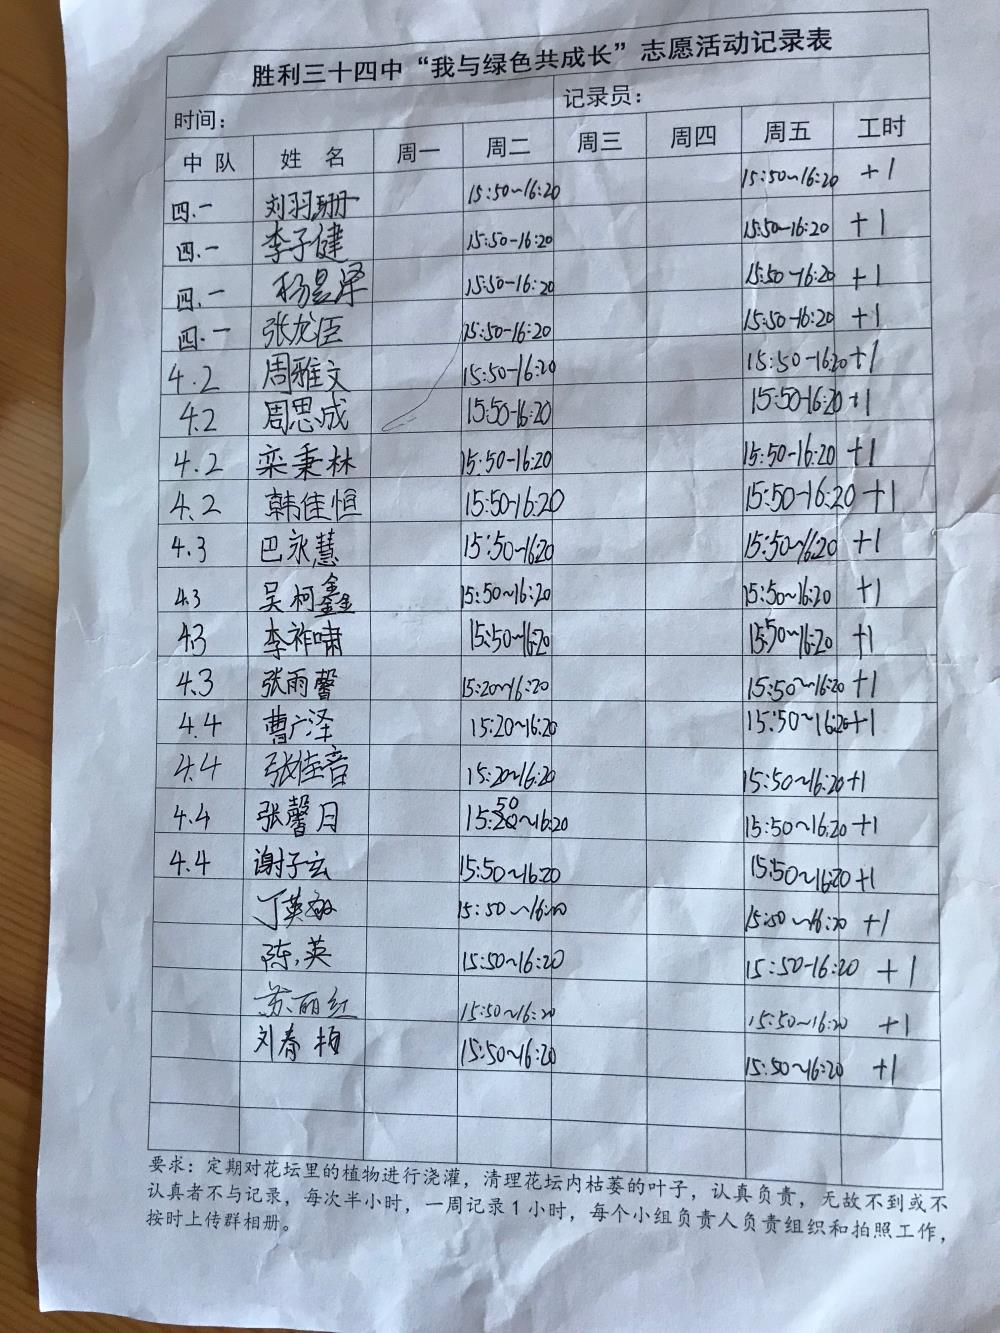 胜利三十四中“我与绿色共成长”志愿活动记录表
时间： 记录员：
中 队 姓 名 周一 周二 周三 周四 周五 工时
四.一 刘羽珊 15:50~16:20 15:50~16:20 +1
四.一 李子健 15:50-16:20 15:50-16:20 +1
四.一 杨昊泽 15:50-16:20 15:50-16:20 +1
四.一 张龙臣 15:50-16:20 15:50-16:20 +1
4.2 周雅文 15:50-16:20 15:50-16:20 +1
4.2 周思成 15:50-16:20 15:50-16:20 +1
4.2 栾秉林 15:50-16:20 15:50-16:20 +1
4.2 韩佳恒 15:50-16:20 15:50-16:20 +1
4.3 巴永慧 15:50~16:20 15:50~16:20 +1
4.3 吴柯鑫 15:50~16:20 15:50~16:20 +1
4.3 李祚啸 15:50~16:20 15:50~16:20 +1
4.3 张雨馨 15:20~16:20 15:50~16:20 +1
4.4 曹广泽 15:20~16:20 15:50~16:20 +1
4.4 张佳音 15:20~16:20 15:50~16:20 +1
4.4 张馨月 15:50~16:20 15:50~16:20 +1
4.4 谢子玄 15:50~16:20 15:50~16:20 +1
丁英 15:50~16:20 15:50~16:20 +1
陈英 15:50~16:20 15:50-16:20 +1
苏丽红 15:50~16:20 15:50~16:20 +1
刘春梅 15:50~16:20 15:50~16:20 +1
要求：定期对花坛里的植物进行浇灌，清理花坛内枯萎的叶子，认真负责，无故不到或不
认真者不与记录，每次半小时，一周记录1小时，每个小组负责人负责组织和拍照工作，
按时上传群相册。